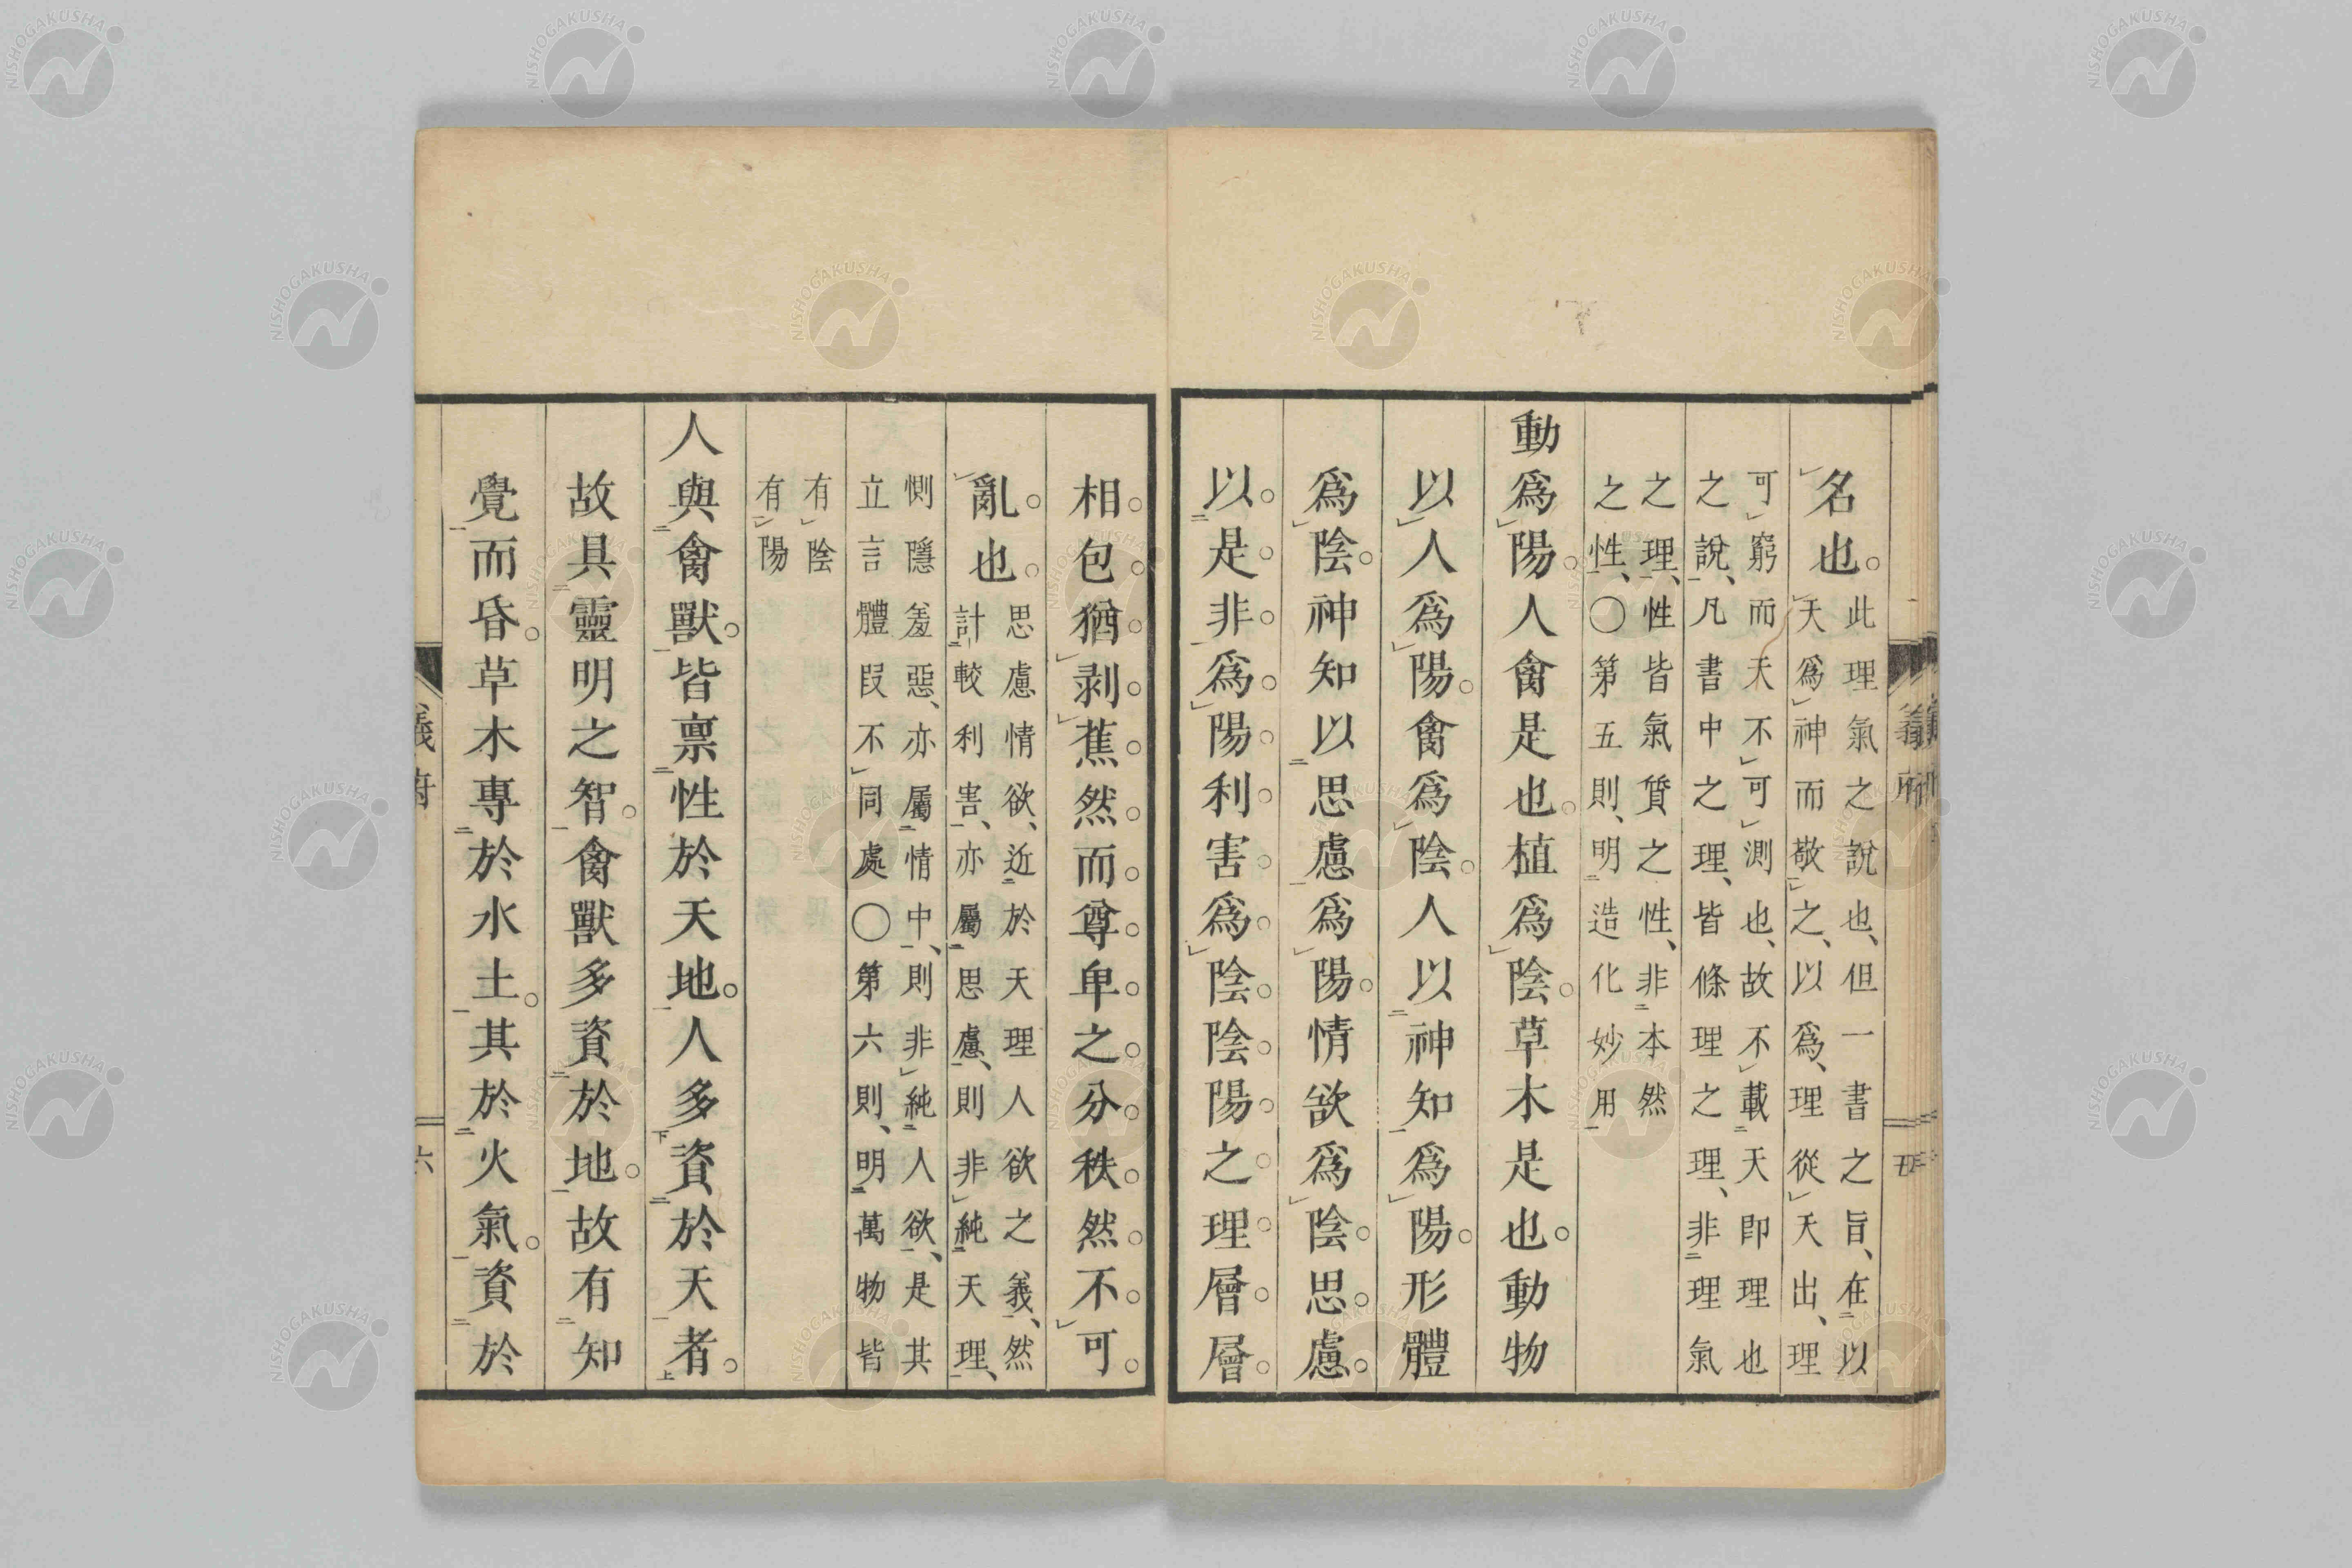 名也。此理氣之說也、但一書之旨、在以
天爲神而敬之、以爲、理從天出、理
可窮而天不可測也、故不載天即理也
之說、凡書中之理、皆條理之理、非理氣
之理、性皆氣質之性、非本然
之性、〇第五則、明造化妙用
動爲陽。人禽是也。植爲陰。草木是也。動物
以人爲陽。禽爲陰。人以神知爲陽。形體
爲陰。神知以思慮爲陽。情欲爲陰。思慮。
以。是。非。爲。陽。利。害。爲。陰。陰。陽。之。理。層。層。
相。包。猶。剥。蕉。然。而。尊。卑。之。分。秩。然。不。可。
亂。也。思慮情欲、近於天理人欲之義、然
計較利害、亦屬思慮、則非純天理、
惻隱羞惡、亦屬情中、則非純人欲、是其
立言體段不同處〇第六則、明萬物皆
有陰
有陽
人與禽獸。皆禀性於天地。人多資於天者。
故具靈明之智。禽獸多資於地。故有知
覺而昏。草木專於水土。其於火氣。資於
義府
五
義府
六
NISHOGAKUSHA